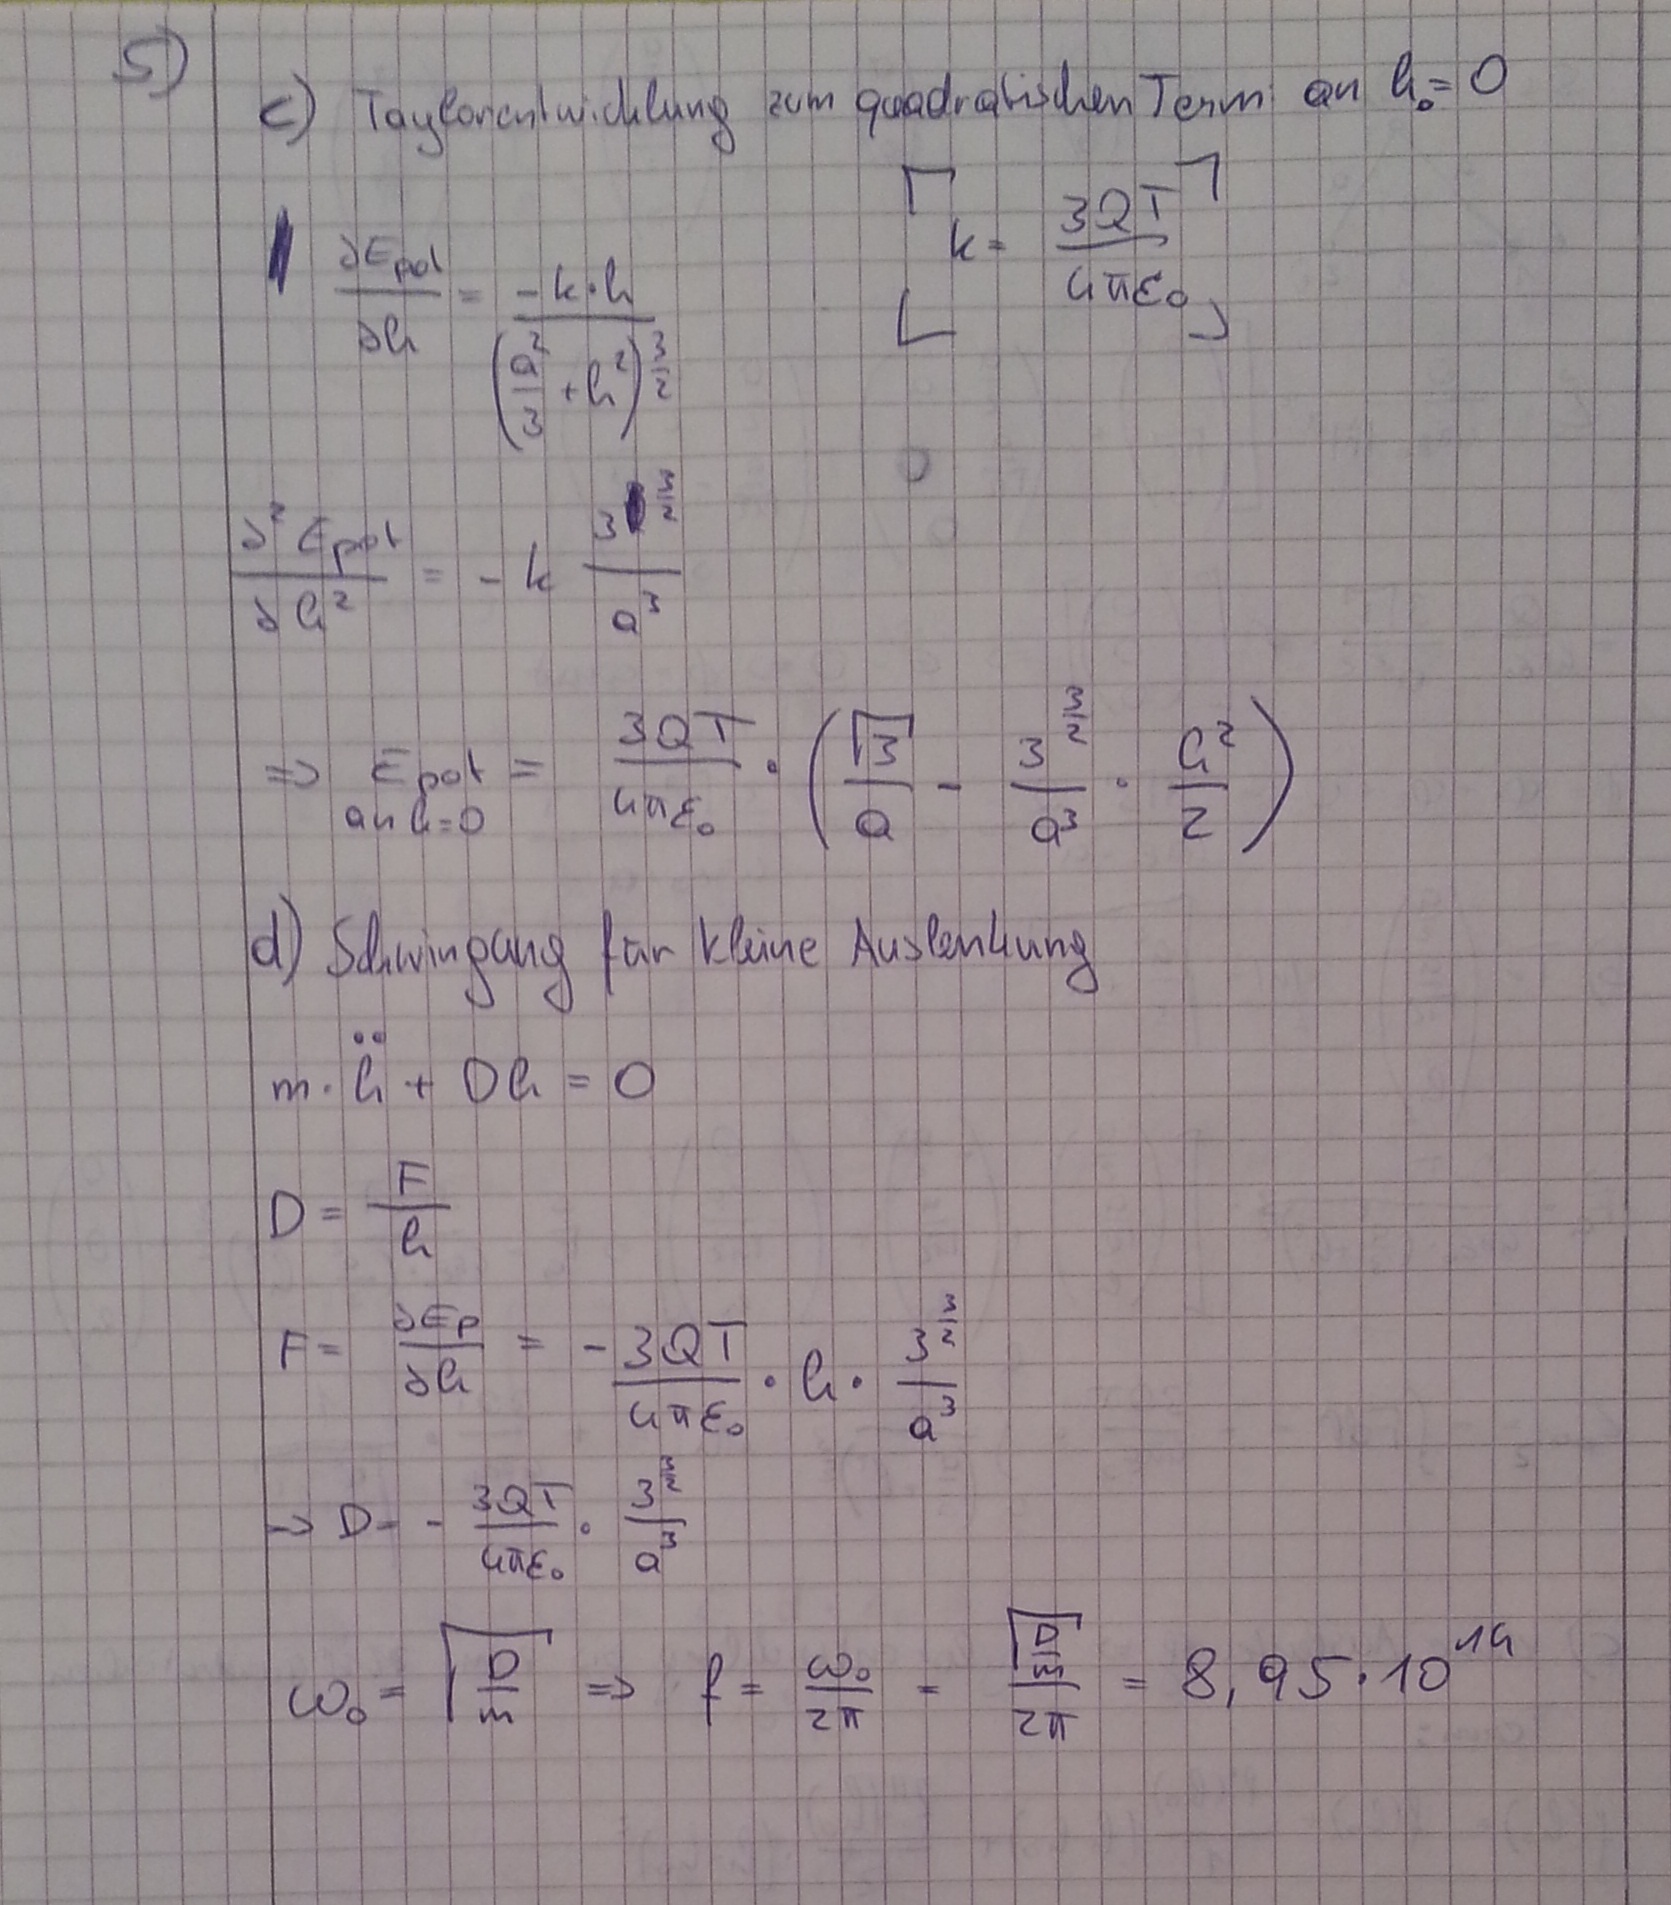 5)
c) Taylorentwicklung zum quadratischen Term an h₀ = 0
[k = 3QT / 4πε₀]
∂Epot / ∂h = -k·h / (a²/3 + h²)^(3/2)
∂²Epot / ∂h² = -k 3^(3/2) / a³
=> Epot an h=0 = 3QT / 4πε₀ · (√3 / a - 3^(3/2) / a³ · h² / 2)
d) Schwingung für kleine Auslenkung
m·ḧ + Dh = 0
D = F / h
F = ∂Ep / ∂h = - 3QT / 4πε₀ · h · 3^(3/2) / a³
-> D = - 3QT / 4πε₀ · 3^(3/2) / a³
ω₀ = √(D/m) => f = ω₀ / 2π = √(D/m) / 2π = 8,95·10¹⁴